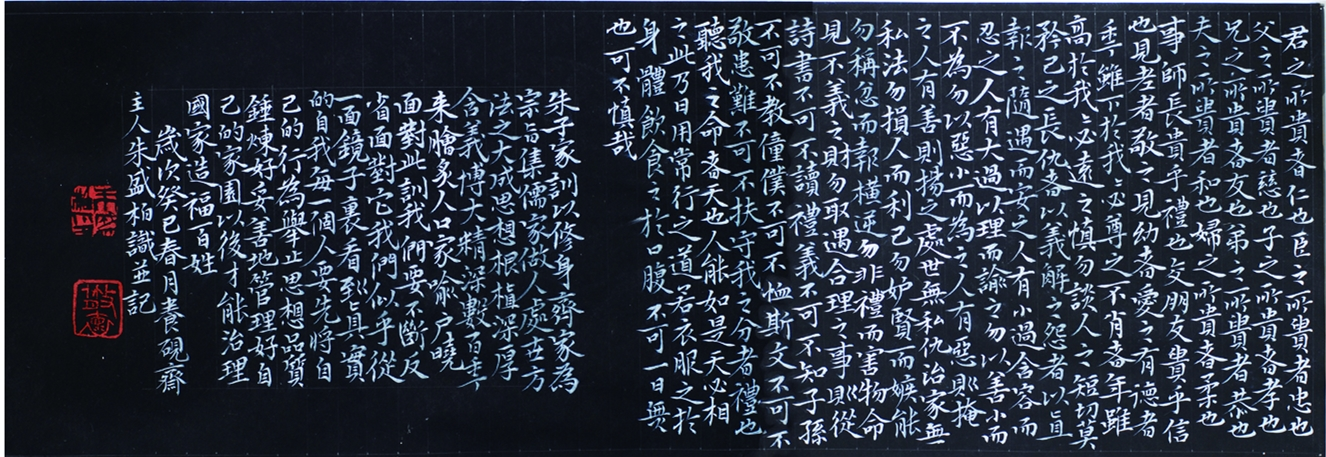 君之所貴者仁也臣之所貴者忠也
父之所貴者慈也子之所貴者孝也
兄之所貴者友也弟之所貴者恭也
夫之所貴者和也婦之所貴者柔也
事師長貴乎禮也交朋友貴乎信
也見老者敬之見幼者愛之有德者
年雖下於我〻必尊之不肖者年雖
高於我〻必遠之慎勿談人之短切莫
矜己之長仇者以義解之怨者以直
報之隨遇而安之人有小過含容而
忍之人有大過以理而諭之勿以善小而
不為勿以惡小而為之人有惡則掩
之人有善則揚之處世無私仇治家無
私法勿損人而利己勿妒賢而嫉能
勿稱忿而報橫逆勿非禮而害物命
見不義之財勿取遇合理之事則從
詩書不可不讀禮義不可不知子孫
不可不教僮僕不可不恤斯文不可不
敬患難不可不扶守我之分者禮也
聽我之命者天也人能如是天必相
之此乃日用常行之道若衣服之於
身體飲食之於口腹不可一日無
也可不慎哉
朱子家訓以修身齊家為
宗旨集儒家做人處世方
法之大成思想根植深厚
含義博大精深數百年
來膾炙人口家喻户曉
面對此訓我們要不斷反
省面對它我們似乎從
一面鏡子裏看到真實
的自我每一個人要先將自
己的行為舉止思想品質
錘煉好妥善地管理好自
己的家園以後才能治理
國家造福百姓
歲次癸巳春月養硯齋
主人朱盛柏識並記